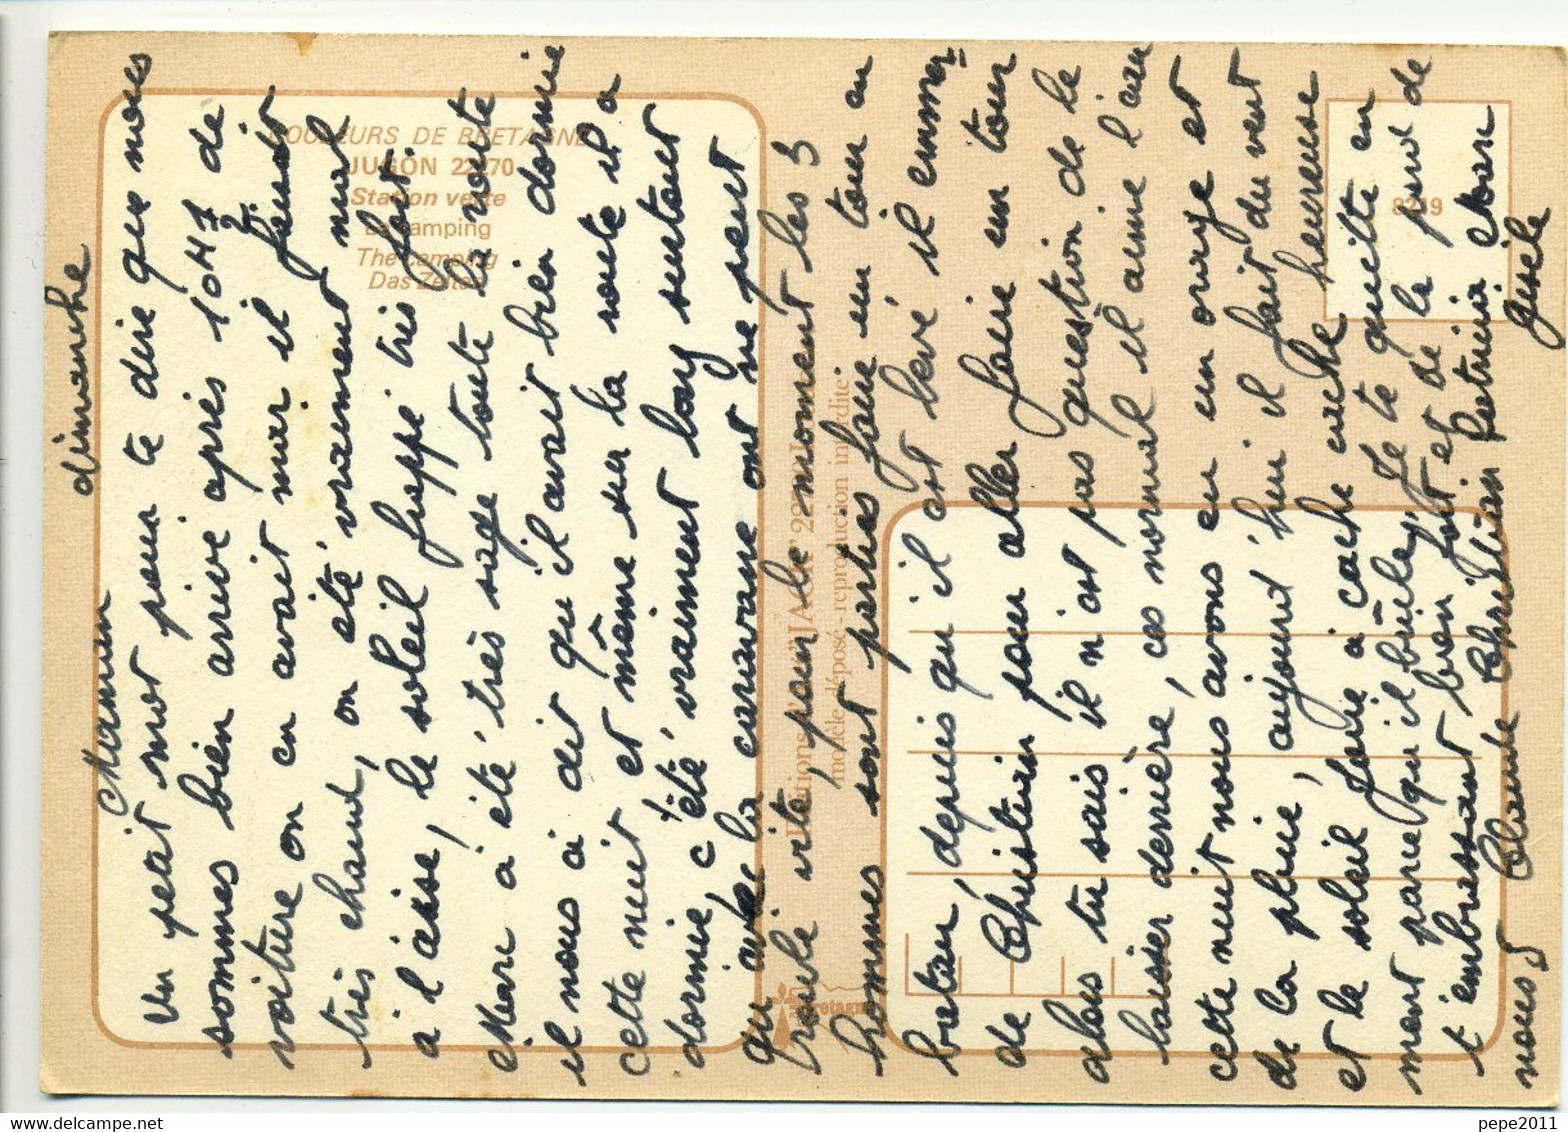 dimanche
Maman
Un petit mot pour te dire que nous
sommes bien arrivé après 10H 1/2 de
voiture on en avait mar il faisait
très chaud, on été vraiment mal
à l'aise, le soleil frappé très fort.
Marc à été très sage toute la route
il nous à dit qu'il avait bien dormie
cette nuit et même sur la route il a
dormie, c'été vraiment long surtout
qu'avec la caravane ont ne peut
roulé vite, pour le moment les 3
hommes sont partis faire un tour au
bateau, depuis qu'il est levé il emmer=
de Christian pour aller faire un tour
alors tu sais il n'est pas question de le
laisser derrière, ces normal il aime l'eau
cette nuit nous avons eu un orage et
de la pluie, aujourd'hui il fait du vent
et le soleil joue à cache cache heureuse
ment parce qu'il brûle, Je te quitte en
t'embrassant bien fort et de la part de
nous 5 Claude Christian Patricia Marc
Gisèle
COULEURS DE BRETAGNE
JUGON 22270
Station verte
Le camping
The camping
Das Zelten
8219
modèle déposé - reproduction interdite
Bretagne
pepe2011